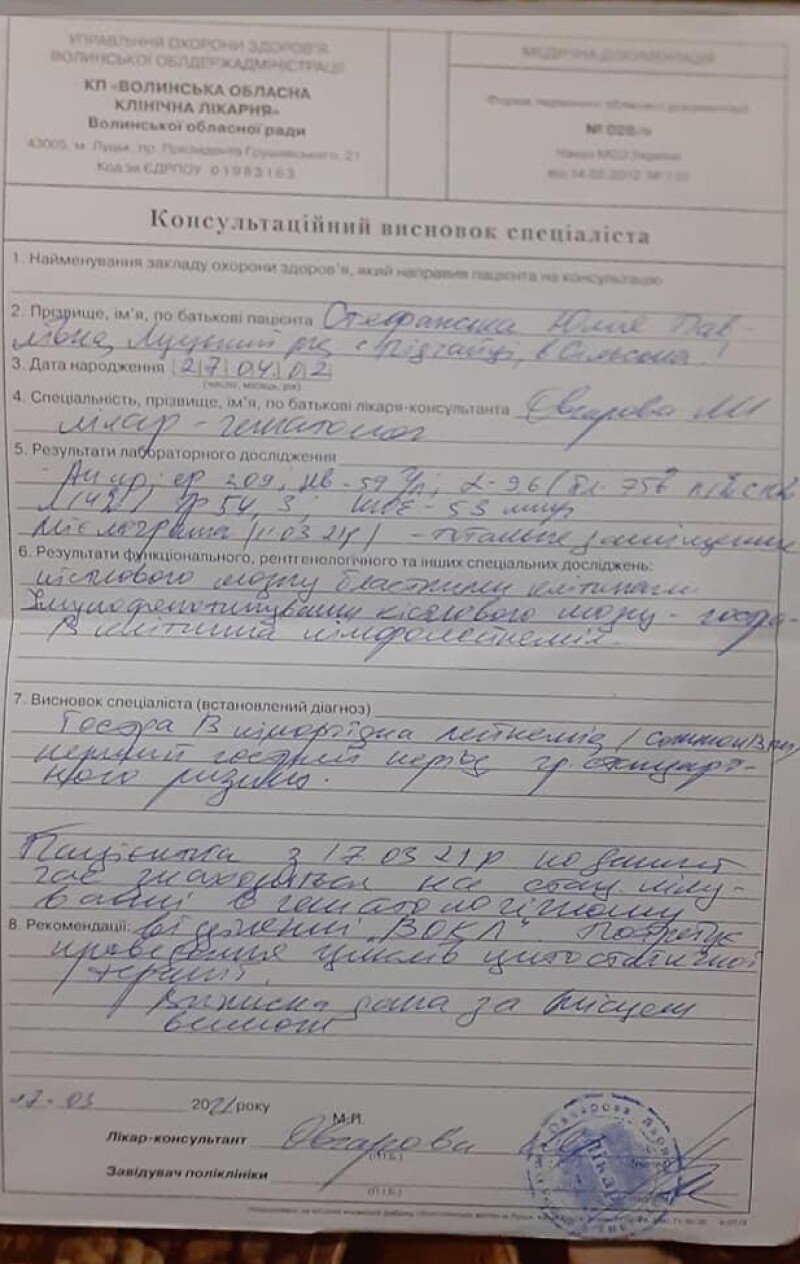 УПРАВЛІННЯ ОХОРОНИ ЗДОРОВ'Я
ВОЛИНСЬКОЇ ОБЛДЕРЖАДМІНІСТРАЦІЇ
КП «ВОЛИНСЬКА ОБЛАСНА
КЛІНІЧНА ЛІКАРНЯ»
Волинської обласної ради
43005, м. Луцьк, пр. Президента Грушевського, 21
Код за ЄДРПОУ 01983163
МЕДИЧНА ДОКУМЕНТАЦІЯ
Форма первинної облікової документації
№ 028/о
Наказ МОЗ України
Консультаційний висновок спеціаліста
1. Найменування закладу охорони здоров'я, який направив пацієнта на консультацію
2. Прізвище, ім'я, по батькові пацієнта Стефанська Юлія Пав-
лівна, Луцький р-н, с. Підгайці, в
3. Дата народження 27 04 02
(число, місяць, рік)
4. Спеціальність, прізвище, ім'я, по батькові лікаря-консультанта М
лікар - гематолог
5. Результати лабораторного дослідження
ер 209, Hb - 59 г/л; L - 96
54, 3; ШОЕ - 53 мм/г
Мієлограма (11 03 21р) - тотальне заміщення
6. Результати функціонального, рентгенологічного та інших спеціальних досліджень:
кісткового мозку бластними клітинами.
Імунофенотипування кісткового мозку - гостра
В клітинна лімфолейкемія.
7. Висновок спеціаліста (встановлений діагноз)
Гостра В лімфоїдна лейкемія / common В
перший гострий період, гр. стандарт-
ного ризику.
Пацієнтка з 17 03 21р по даний
час знаходиться на стац ліку-
ванні в гематологічному
8. Рекомендації: відділенні "ВОКЛ". Потребує
проведення циклів цитостатичної
терапії.
Виписка дана за місцем
вимоги
17.03 2021 року
М.П.
Лікар-консультант
(П.І.Б.)
Завідувач поліклініки
(П.І.Б.)